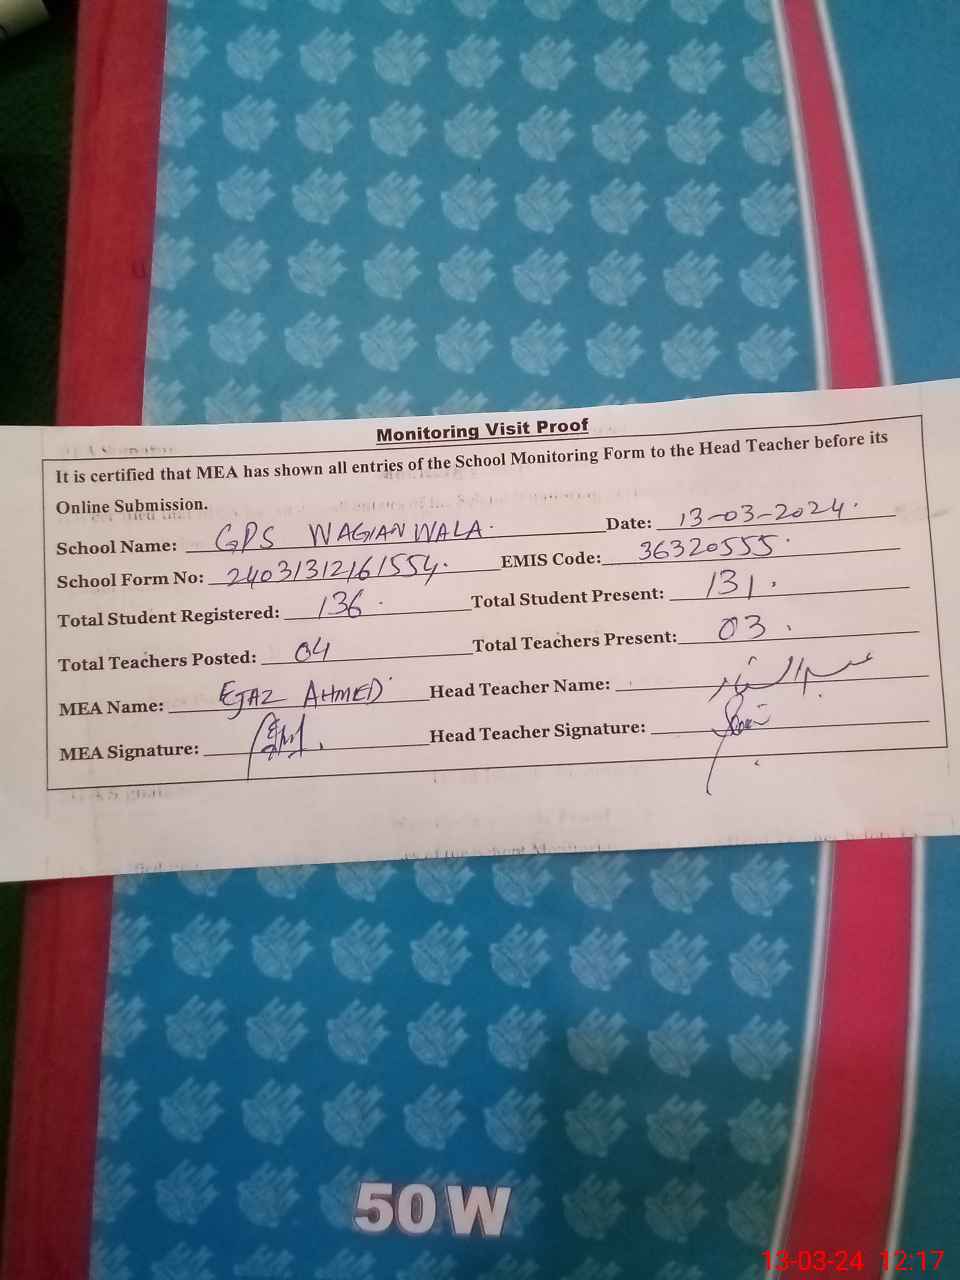 Monitoring Visit Proof
It is certified that MEA has shown all entries of the School Monitoring Form to the Head Teacher before its
Online Submission.
School Name: GPS WAGIANWALA. Date: 13-03-2024.
School Form No: 24031312161554. EMIS Code: 36320555.
Total Student Registered: 136. Total Student Present: 131.
Total Teachers Posted: 04 Total Teachers Present: 03.
MEA Name: EJAZ AHMED Head Teacher Name:
MEA Signature: Head Teacher Signature:
50 W
13-03-24 12:17